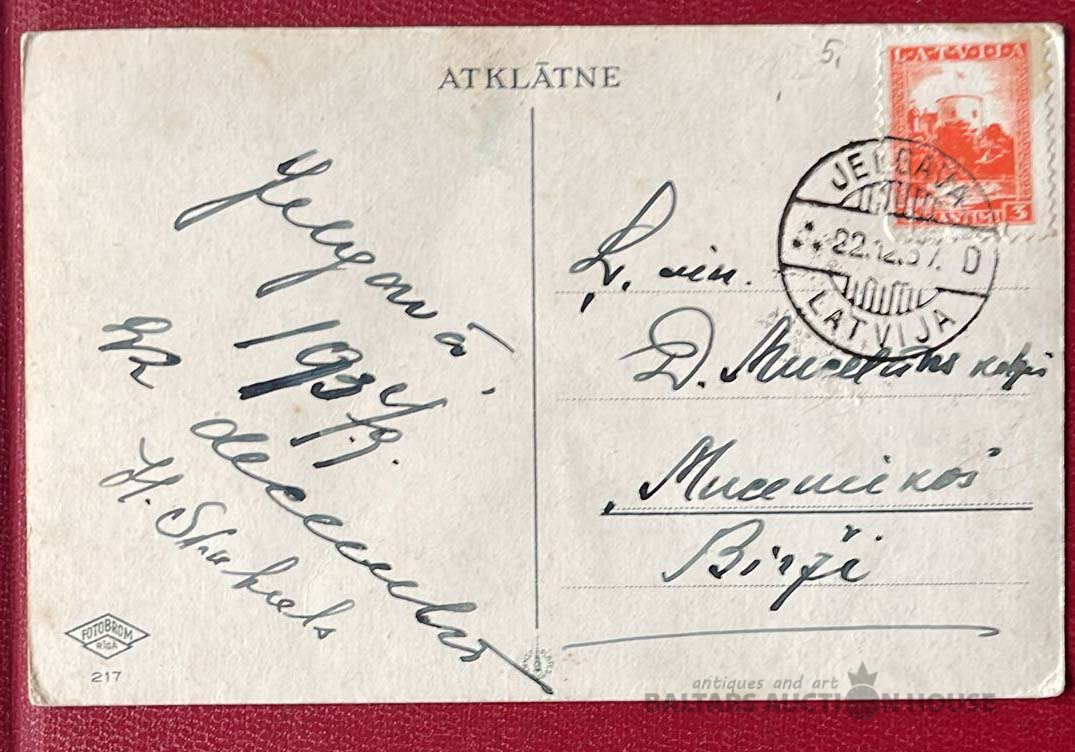 ATKLĀTNE
5,
LATVIJA
3
JELGAVA
22.12.37. D
LATVIJA
Jelgavā
1937.g.
22 decembrī
H.
Ļ. cien.
D.
"Muceniekos"
Birži
FOTOBROM
RĪGĀ
217
antiques and art
BALTARS AUCTION HOUSE